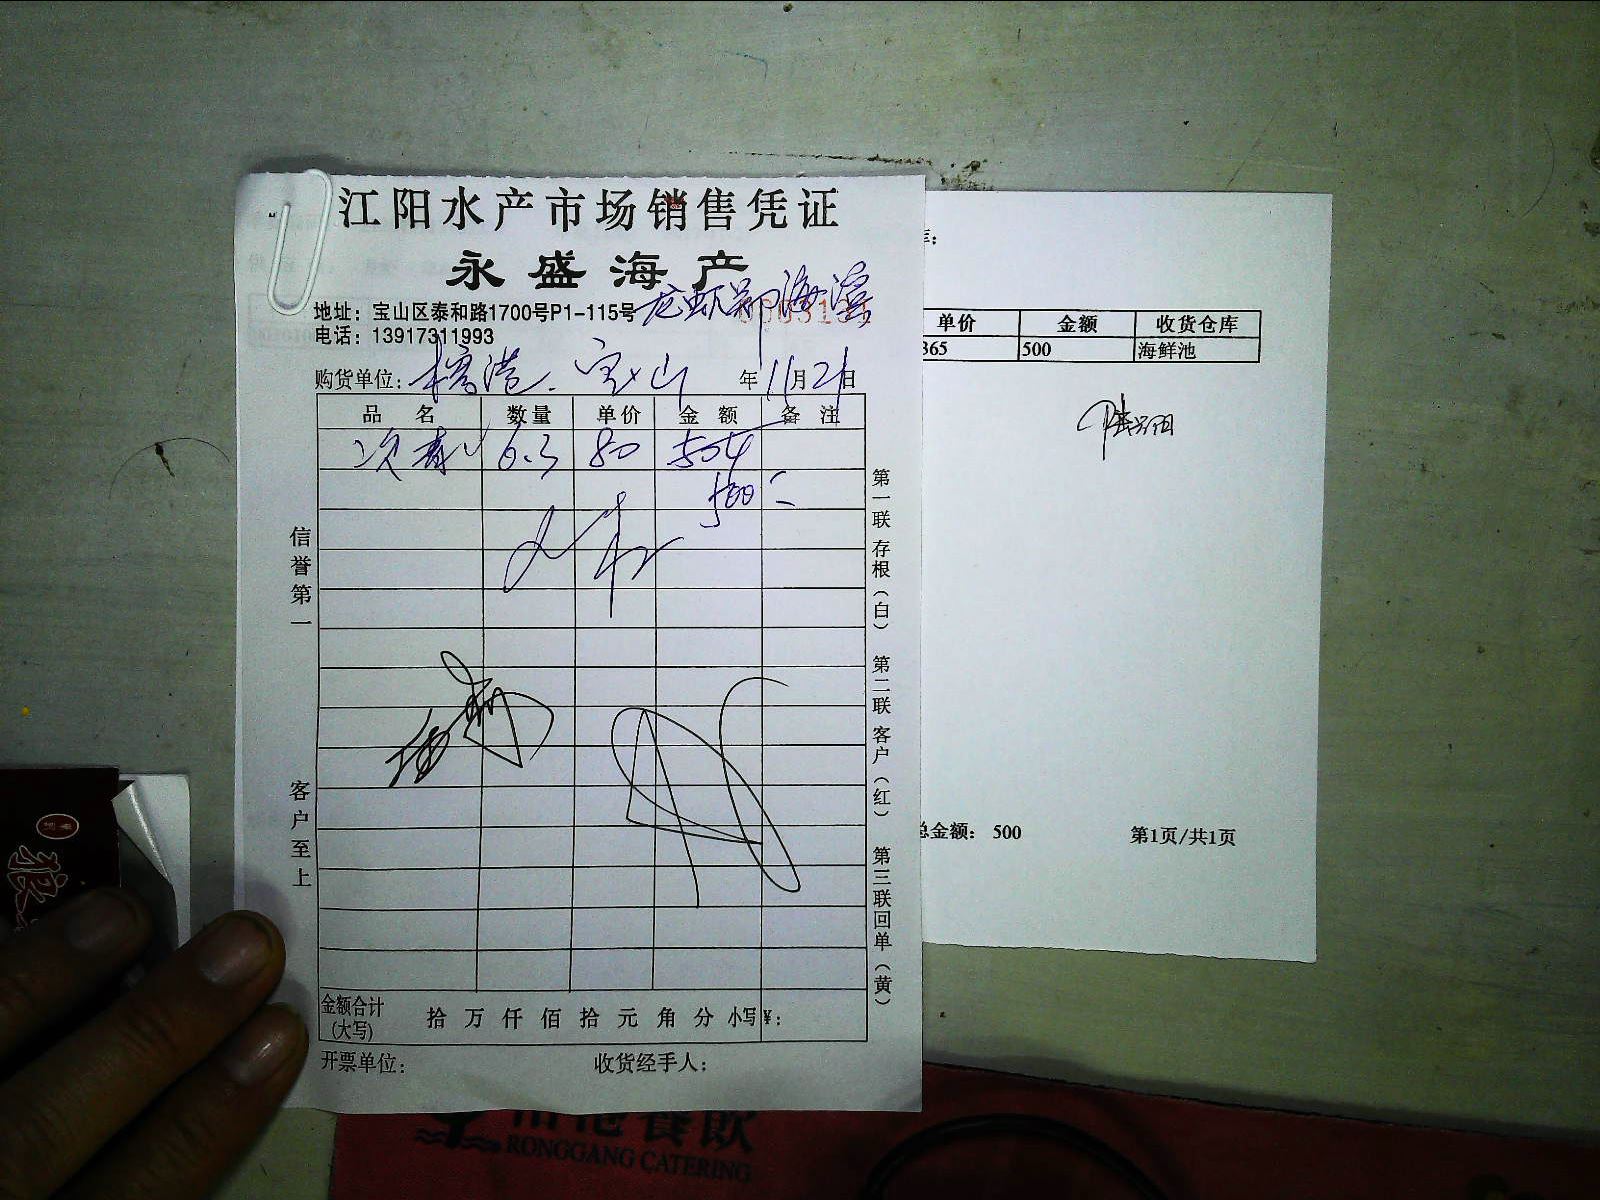 江阳水产市场销售凭证
永盛海产
地址：宝山区泰和路1700号P1-115号
电话：13917311993
购货单位： 宝山 年 11月21日
品名 数量 单价 金额 备注
6.3 80 504
500
信誉第一
客户至上
第一联 存根（白） 第二联 客户（红） 第三联 回单（黄）
金额合计（大写） 拾 万 仟 佰 拾 元 角 分 小写￥：
开票单位： 收货经手人：
单价 金额 收货仓库
365 500 海鲜池
总金额： 500 第1页/共1页
餐飲
RONGGANG CATERING